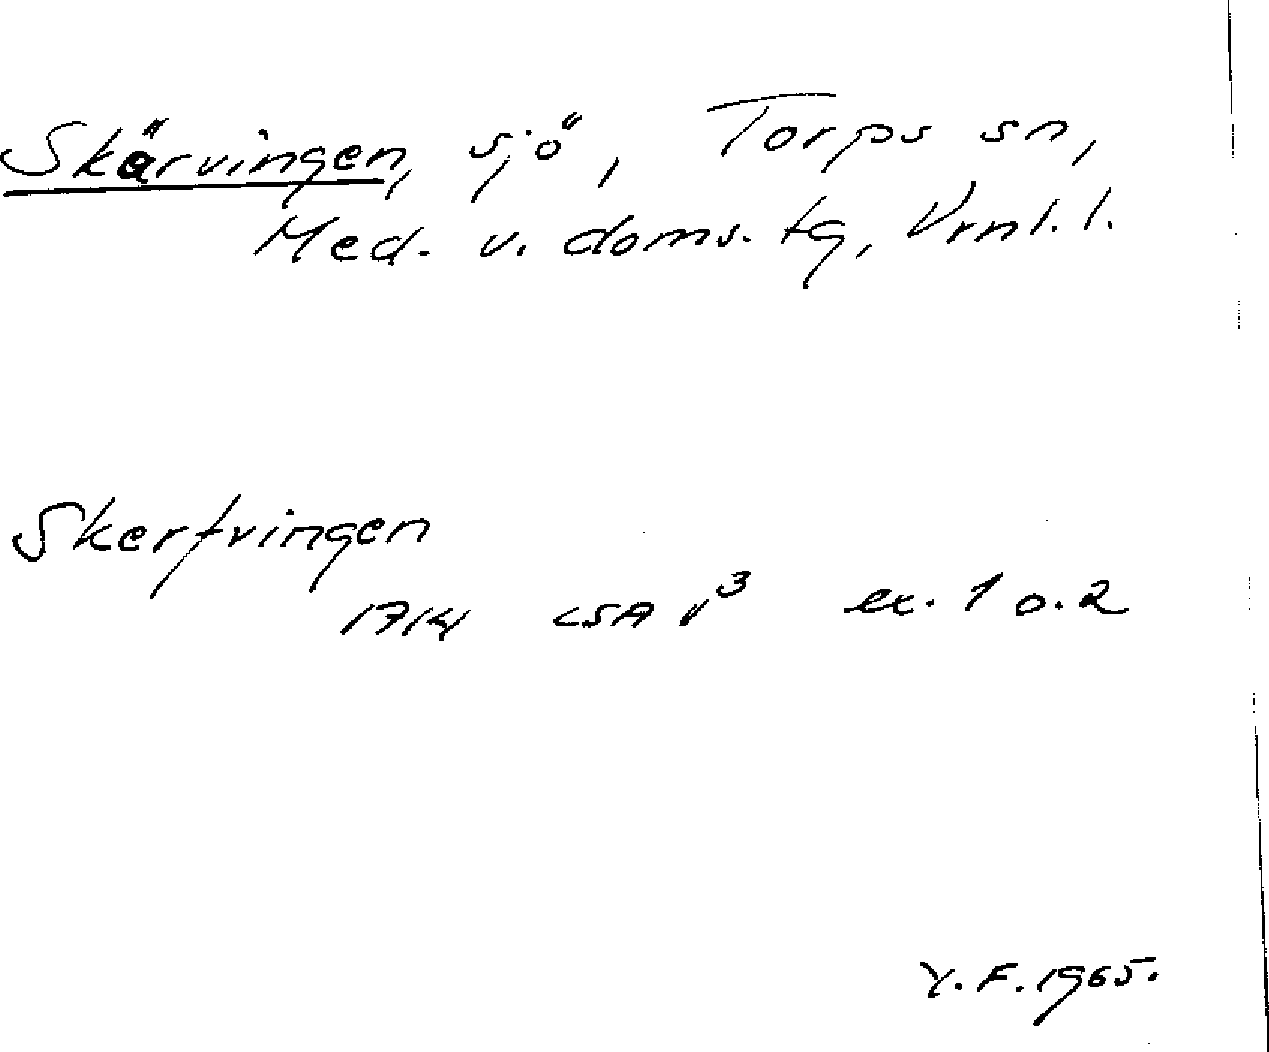 Skärvingen, sjö, Torps sn,
Med. v. doms. tg, Vrnl. l.
Skerfvingen
1714 LSA v³ ex. 1 o. 2
Y. F. 1965.